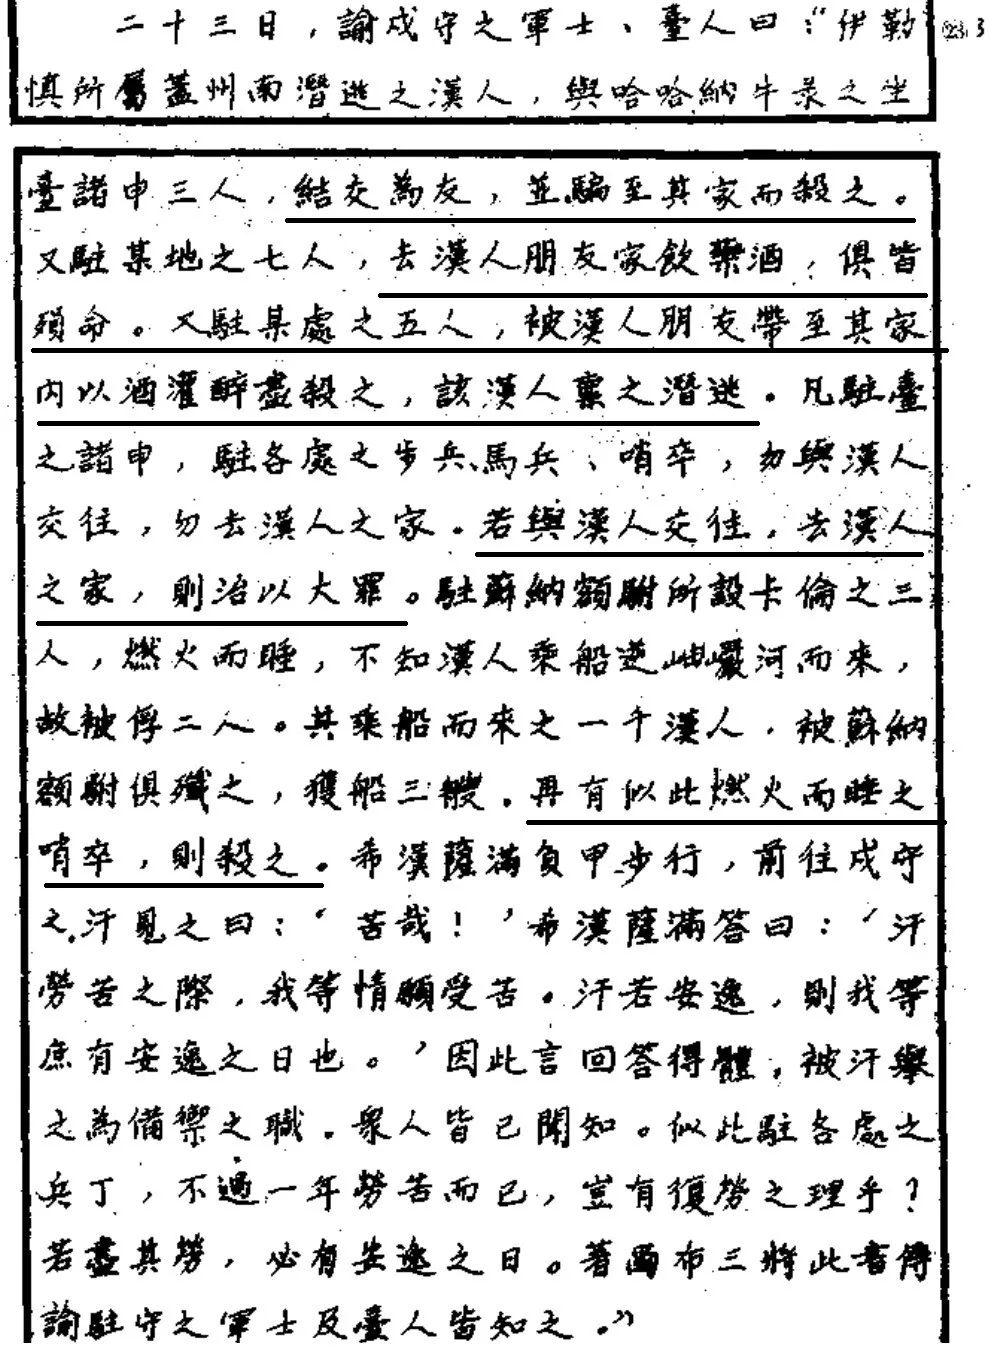 二十三日，諭戍守之軍士、臺人曰："伊勒
慎所屬蓋州南潛逃之漢人，與哈哈納牛彔之坐
臺諸申三人，結交為友，並騙至其家而殺之。
又駐某地之七人，去漢人朋友家飲藥酒，俱皆
殞命。又駐某處之五人，被漢人朋友帶至其家
內以酒灌醉盡殺之，該漢人棄之潛逃。凡駐臺
之諸申，駐各處之步兵、馬兵、哨卒，勿與漢人
交往，勿去漢人之家。若與漢人交往，去漢人
之家，則治以大罪。駐蘇納額駙所設卡倫之三
人，燃火而睡，不知漢人乘船逆岫巖河而來，
故被俘二人。其乘船而來之一千漢人，被蘇納
額駙俱殲之，獲船三艘。再有似此燃火而睡之
哨卒，則殺之。希漢薩滿負甲步行，前往戍守
之，汗見之曰：'苦哉！'希漢薩滿答曰：'汗
勞苦之際，我等情願受苦。汗若安逸，則我等
庶有安逸之日也。'因此言回答得體，被汗舉
之為備禦之職。眾人皆已聞知。似此駐各處之
兵丁，不過一年勞苦而已，豈有復勞之理乎？
若盡其勞，必有安逸之日。著布三將此書傳
諭駐守之軍士及臺人皆知之。"